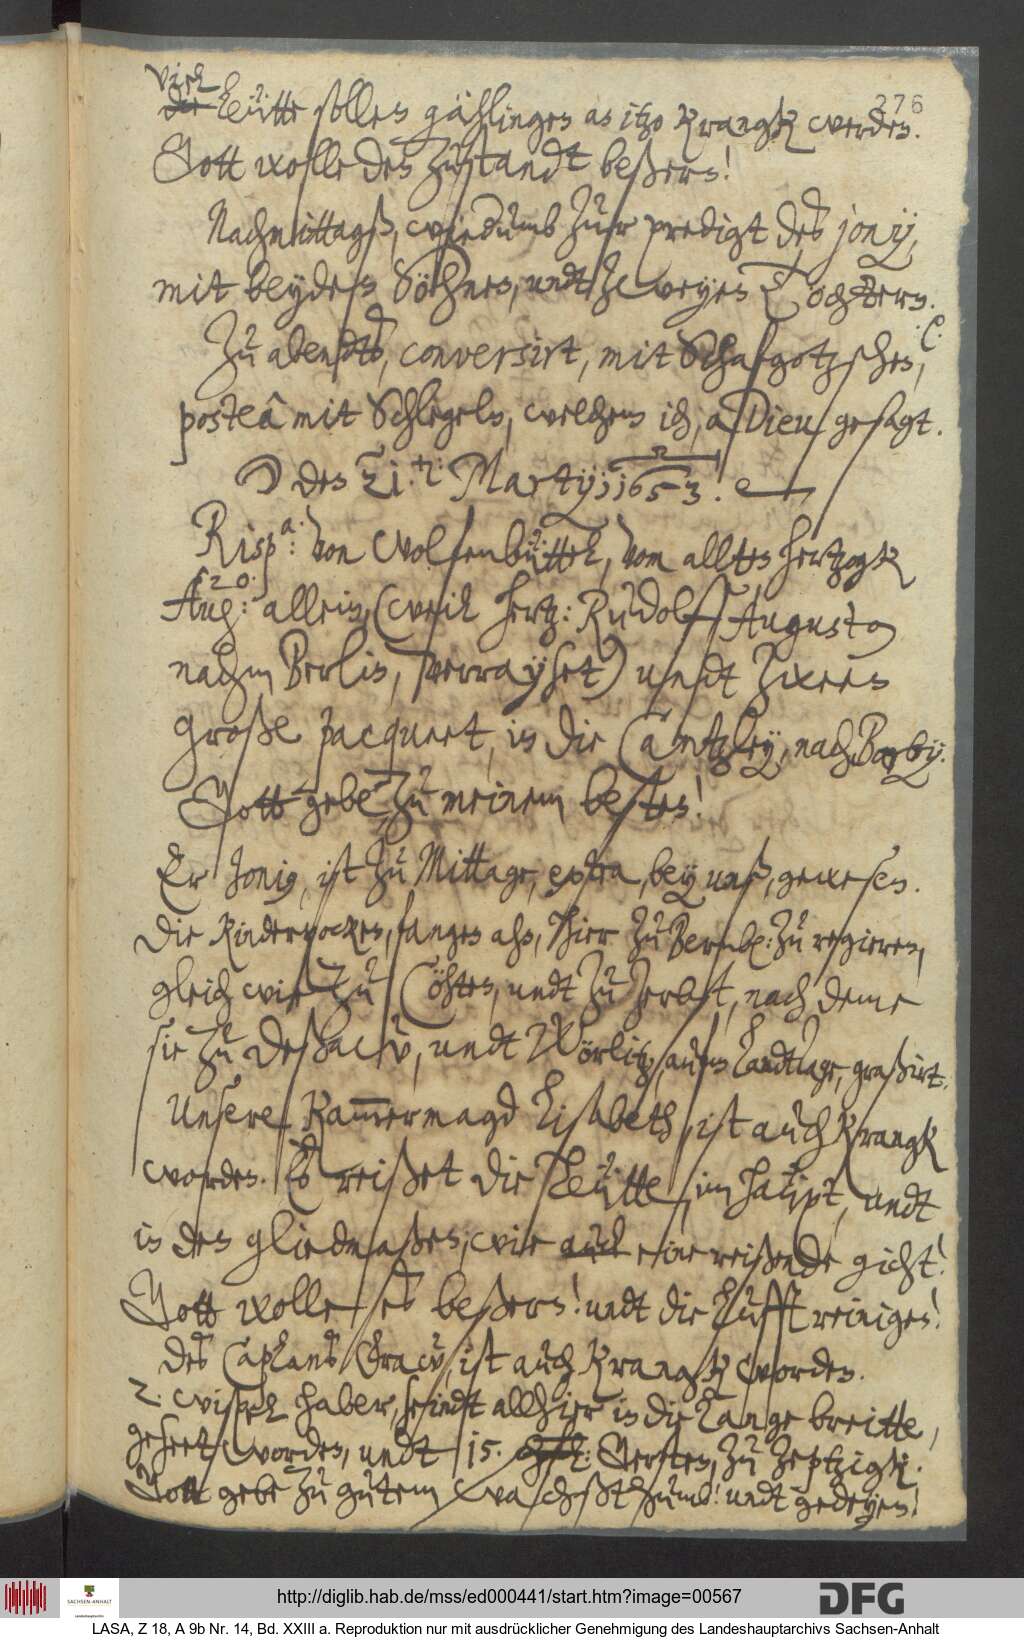 276
viel
die leütte sollen gählingen an itzo kranck werden.
Gott wolle den zustandt beßern!
Nachmittagß, wiedumb zur predigt des Jonij,
mit beyden Söhnen, undt zweyen Töchtern. e.
Zu abendts, conversirt, mit Schafgotzschen,
posteâ mit Schlegeln, welchem ich, a Dieu gesagt.
☽ den 21. Martij; 1653.
Risp.a: von Wolfenbüttel, vom allten hertzogk
Aug: allein, (weil hertz: Rudolff Augusto
nachm Berlin, verrayset) undt zween
große pacqueet, in die Cantzley, nach Barby.
Gott gebe zu meinem besten!
Er Jonij, ist zu Mittage, extra, bey unß, gewesen.
Die Kinderpocken, fangen an, hier zu Bernb: zu regieren,
gleich wie zu Cöhten, undt zu Zerbst, nach deme
sie zu Deßaw, undt Wörlitz, aufm Landtage, graßirt.
Unsere Kammermagd Lisabeth, ist auch kranck
worden. Es reißet die leütte, im haüpt, undt
in den gliedmaßen, wie auch eine reißende gicht!
Gott wolle es beßern! undt die Lufft reinigen!
des Caplans Fraw, ist auch kranck worden.
2. wispel haber, seindt allhier in die Lange breitte,
geseet worden, undt 15. Gersten, zu Zeptzigk.
Gott gebe zu gutem wachßthumb! undt gedeyen!
http://diglib.hab.de/mss/ed000441/start.htm?image=00567
SACHSEN-ANHALT
DFG
LASA, Z 18, A 9b Nr. 14, Bd. XXIII a. Reproduktion nur mit ausdrücklicher Genehmigung des Landeshauptarchivs Sachsen-Anhalt